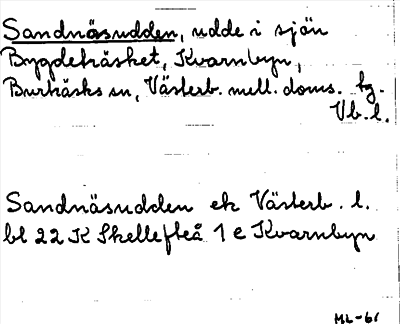 Sandnäsudden, udde i sjön
Bygdeträsket, Kvarnbyn,
Burträsks sn, Västerb. mell. doms. tg.
Vb. l.
Sandnäsudden ek Västerb. l.
bl 22 K Skellefteå 1 e Kvarnbyn
ML-61